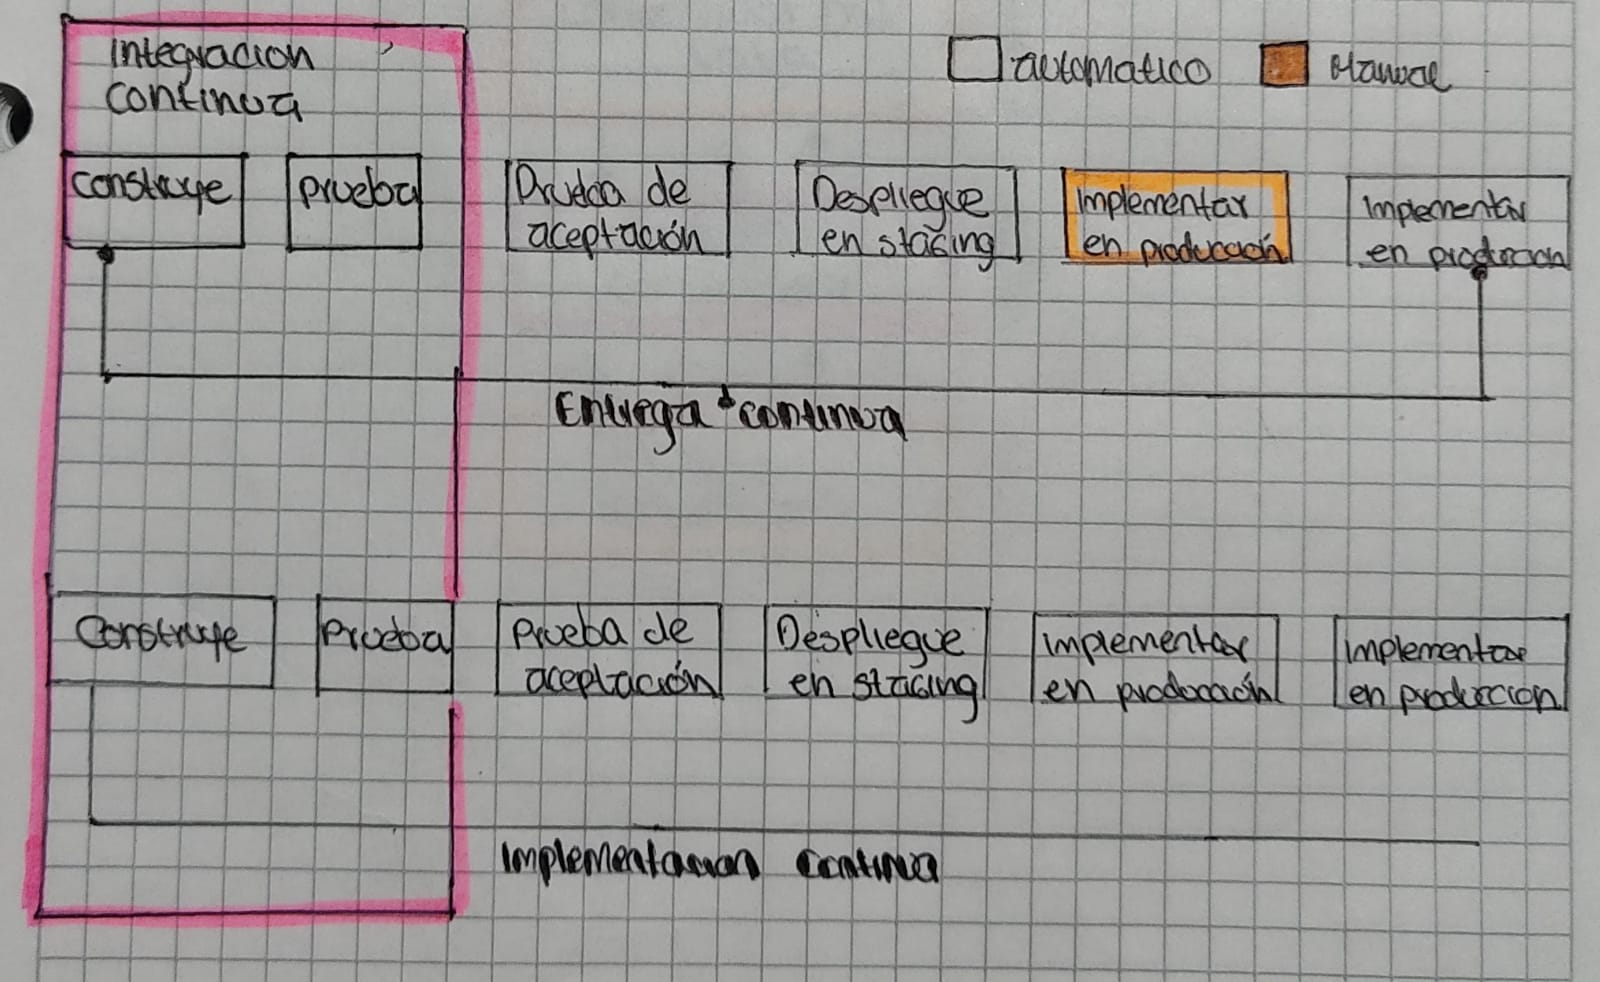 Integracion
continua
automatico
Manual
construye
prueba
Prueba de
aceptación
Despliegue
en staging
Implementar
en producción
Implementar
en produccion
Entrega continua
Construye
Prueba
Prueba de
aceptación
Despliegue
en staging
Implementar
en producción
Implementar
en produccion
Implementacion continua